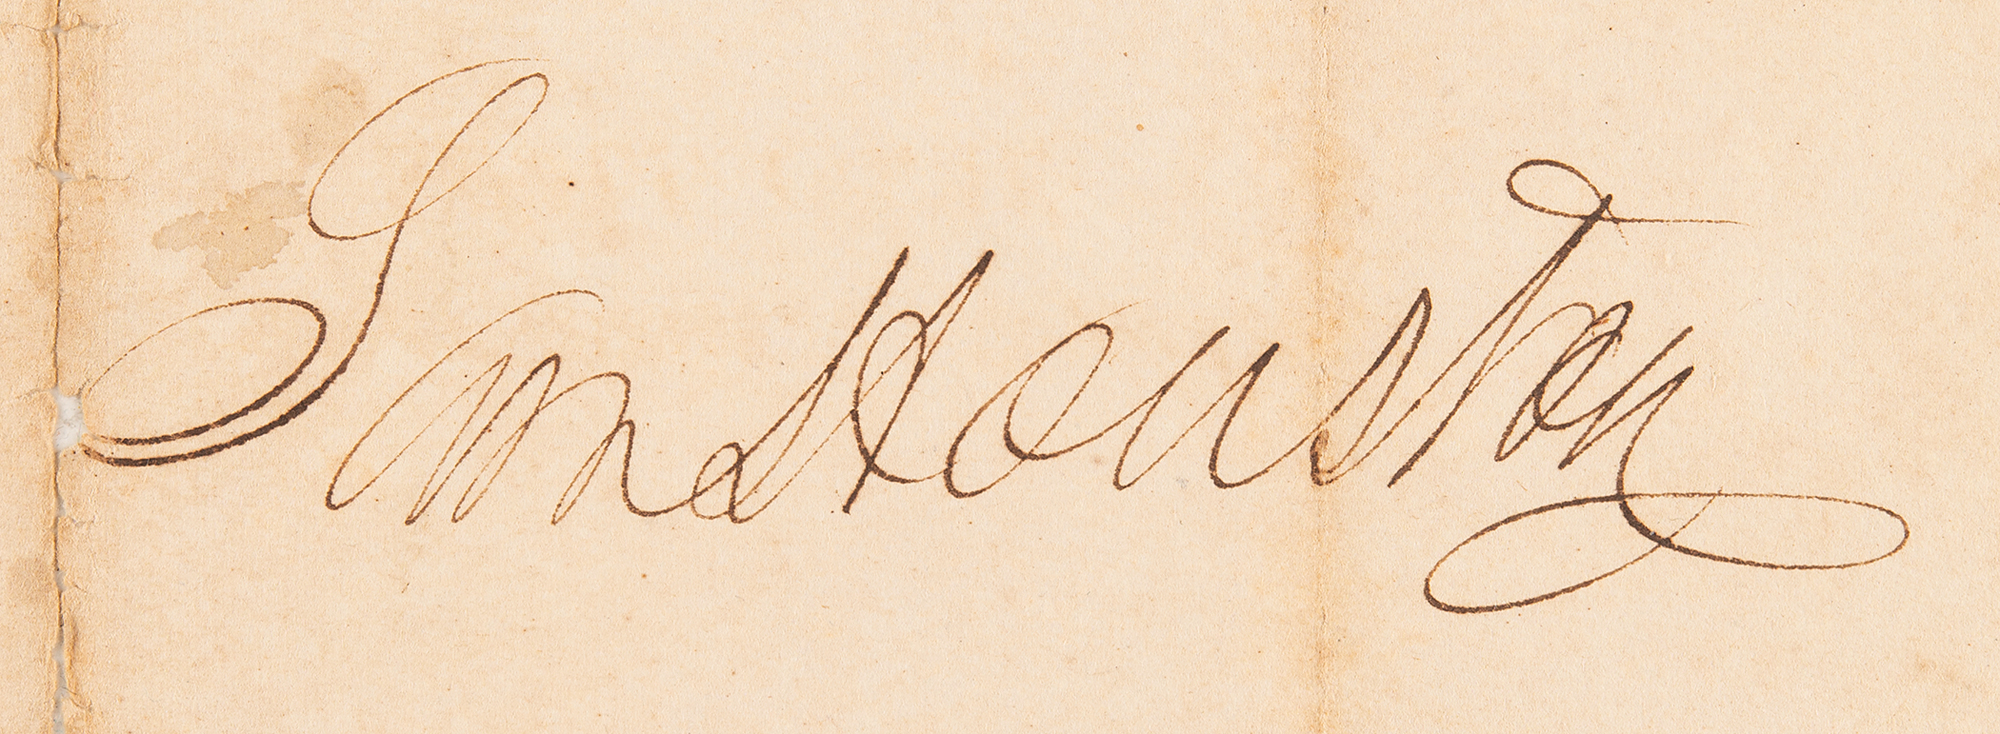 Sam Houston